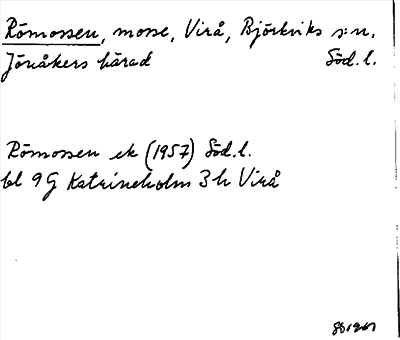 Römossen, mosse, Virå, Björkviks s:n,
Jönåkers härad Söd. l.
Römossen ek (1957) Söd. l.
bl 9G Katrineholm 3h Virå